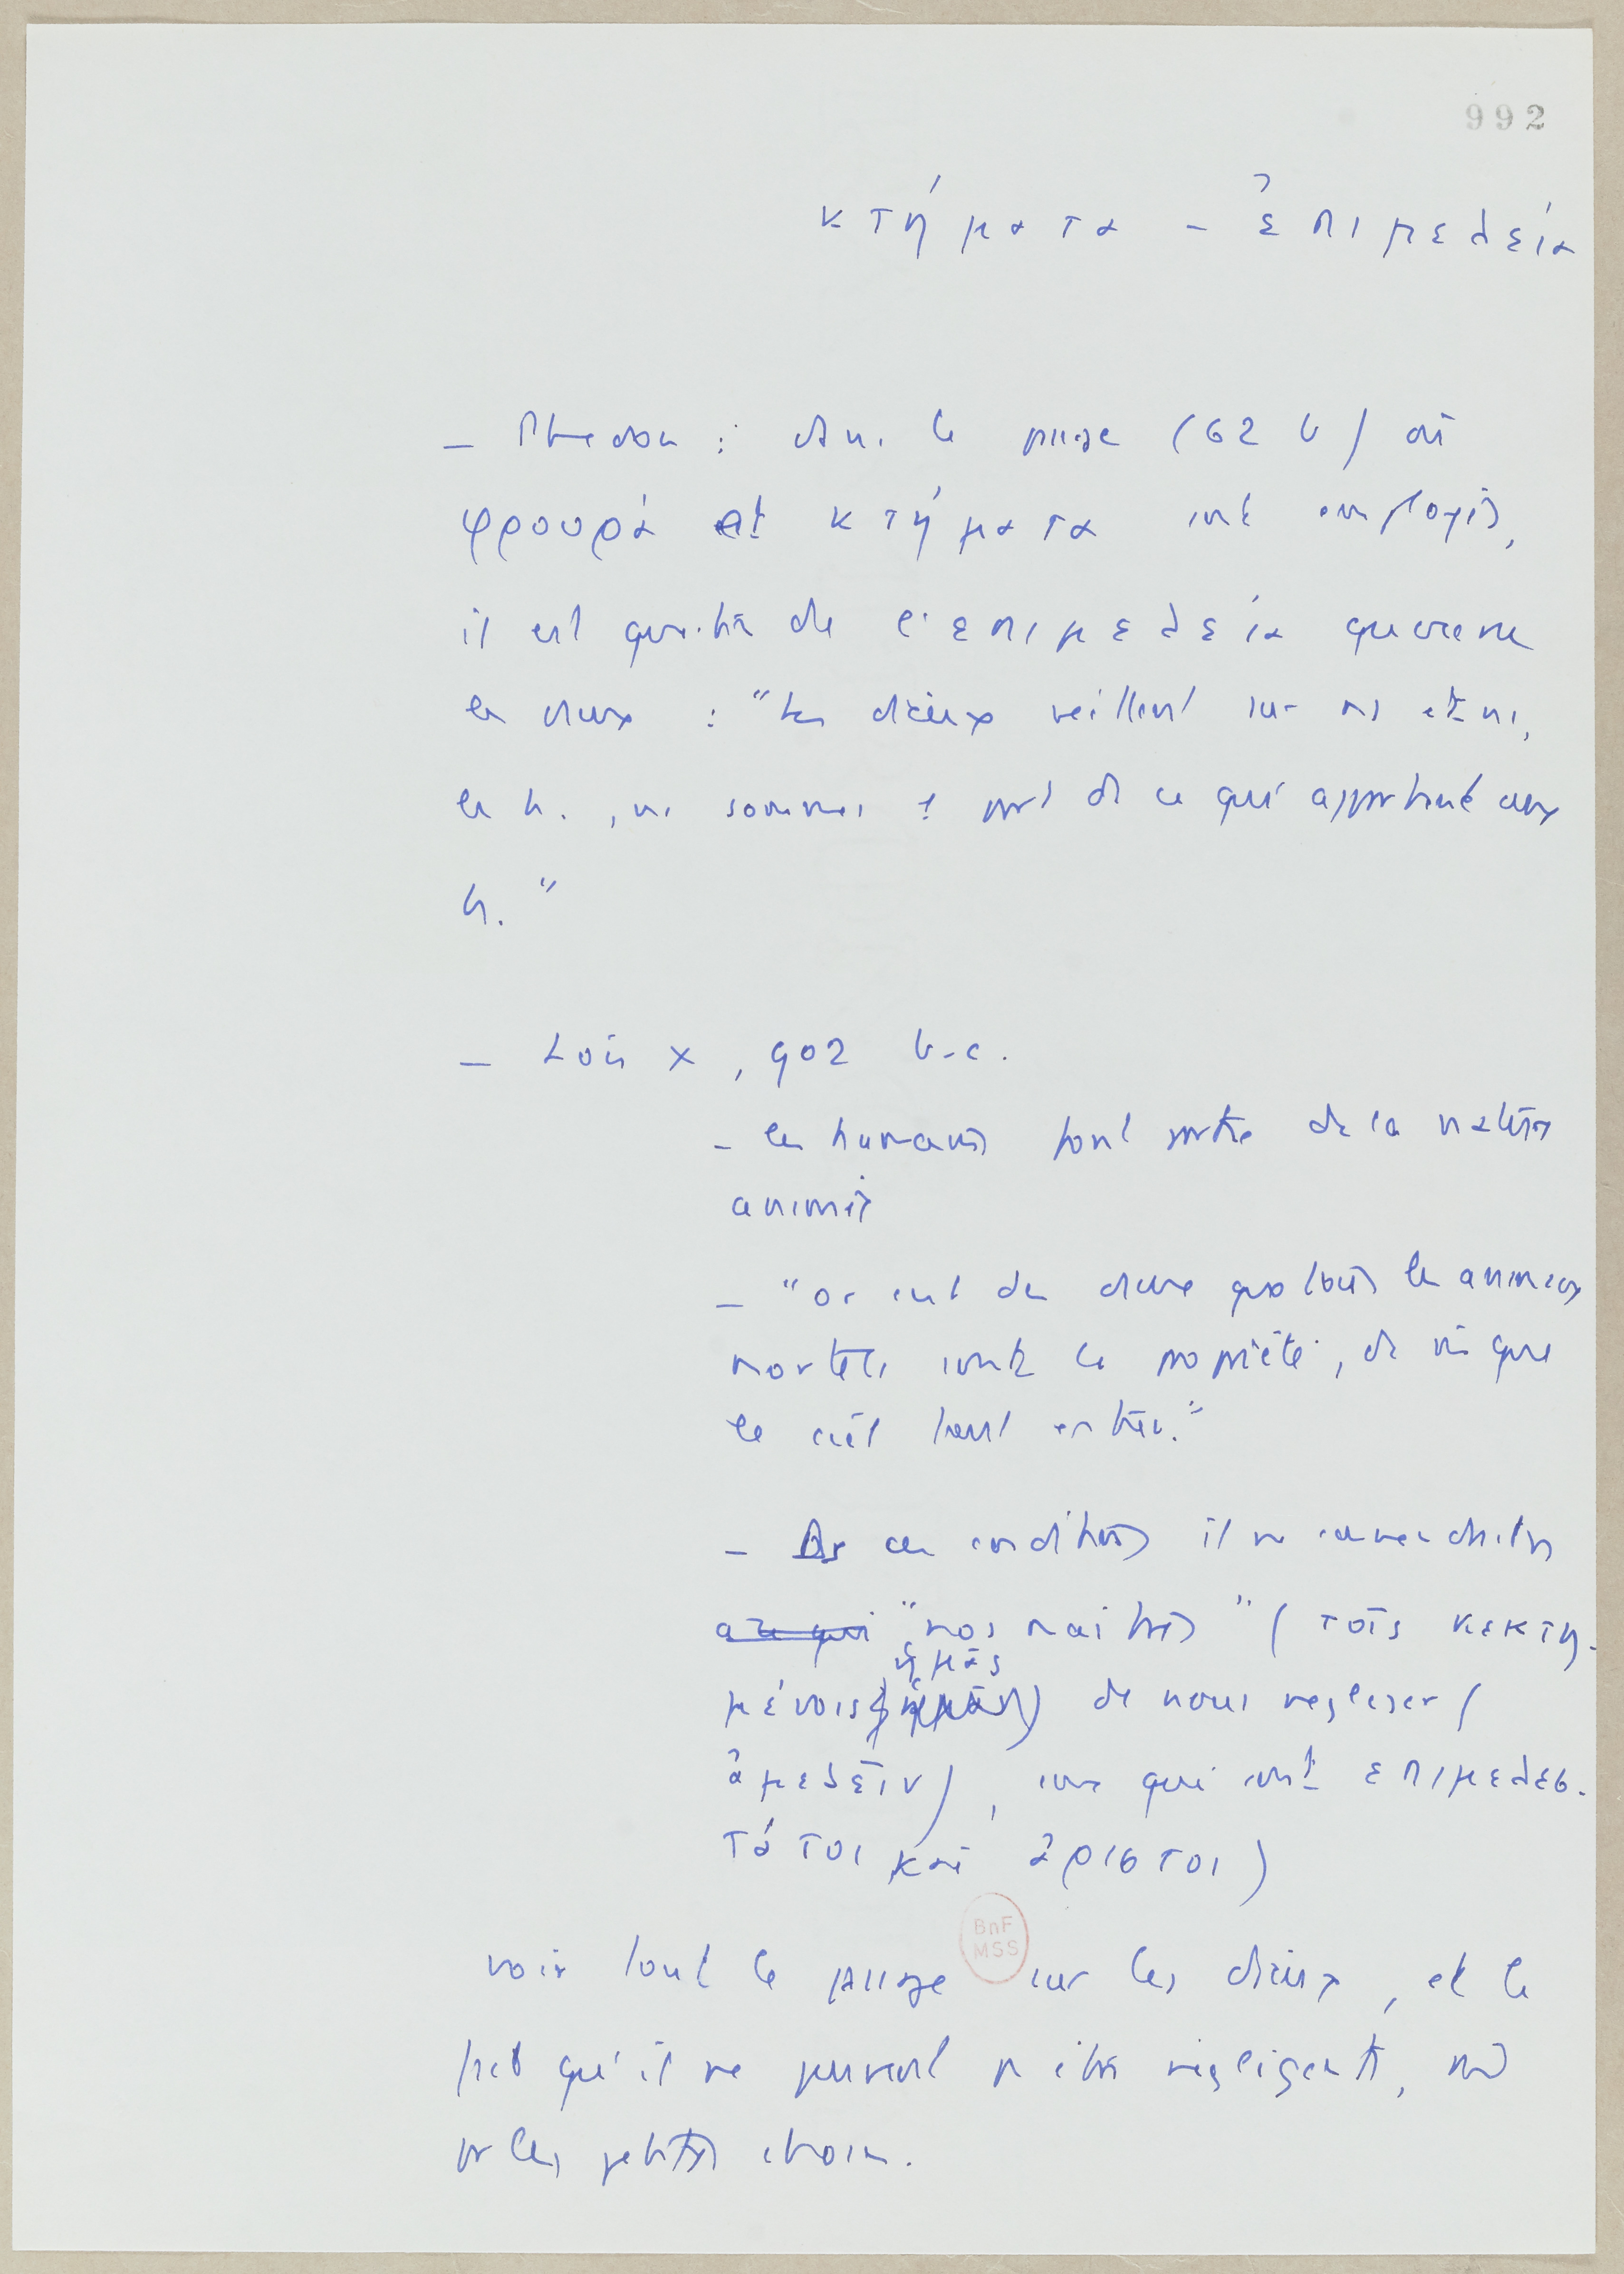 992
κτήματα - ἐπιμελεία
- Phedon : dans le passage (62 b) où
φρουρά et κτήματα sont employés,
il est question de l'επιμελεία que
les dieux : "Les dieux veillent sur ns et ns,
les h., ns sommes 1 part de ce qui appartient aux
h."
- Lois X, 902 b-c.
- les humains font partie de la nature
animée
- "or c'est des dieux que tous les animaux
mortels sont la propriété, de même que
le ciel tout entier."
- Ds ces conditions il ne conviendrait pas
à ce qui "nos maîtres" (τοῖς κεκτη-
ἡμᾶς
μένοις) de nous négliger (
ἀμελεῖν), eux qui sont επιμελεσ-
τάτοι καὶ ἄριστοι)
BnF
MSS
voir tout le passage sur les dieux, et le
fait qu'il ne peuvent pas être négligents, même
pr les petites choses.